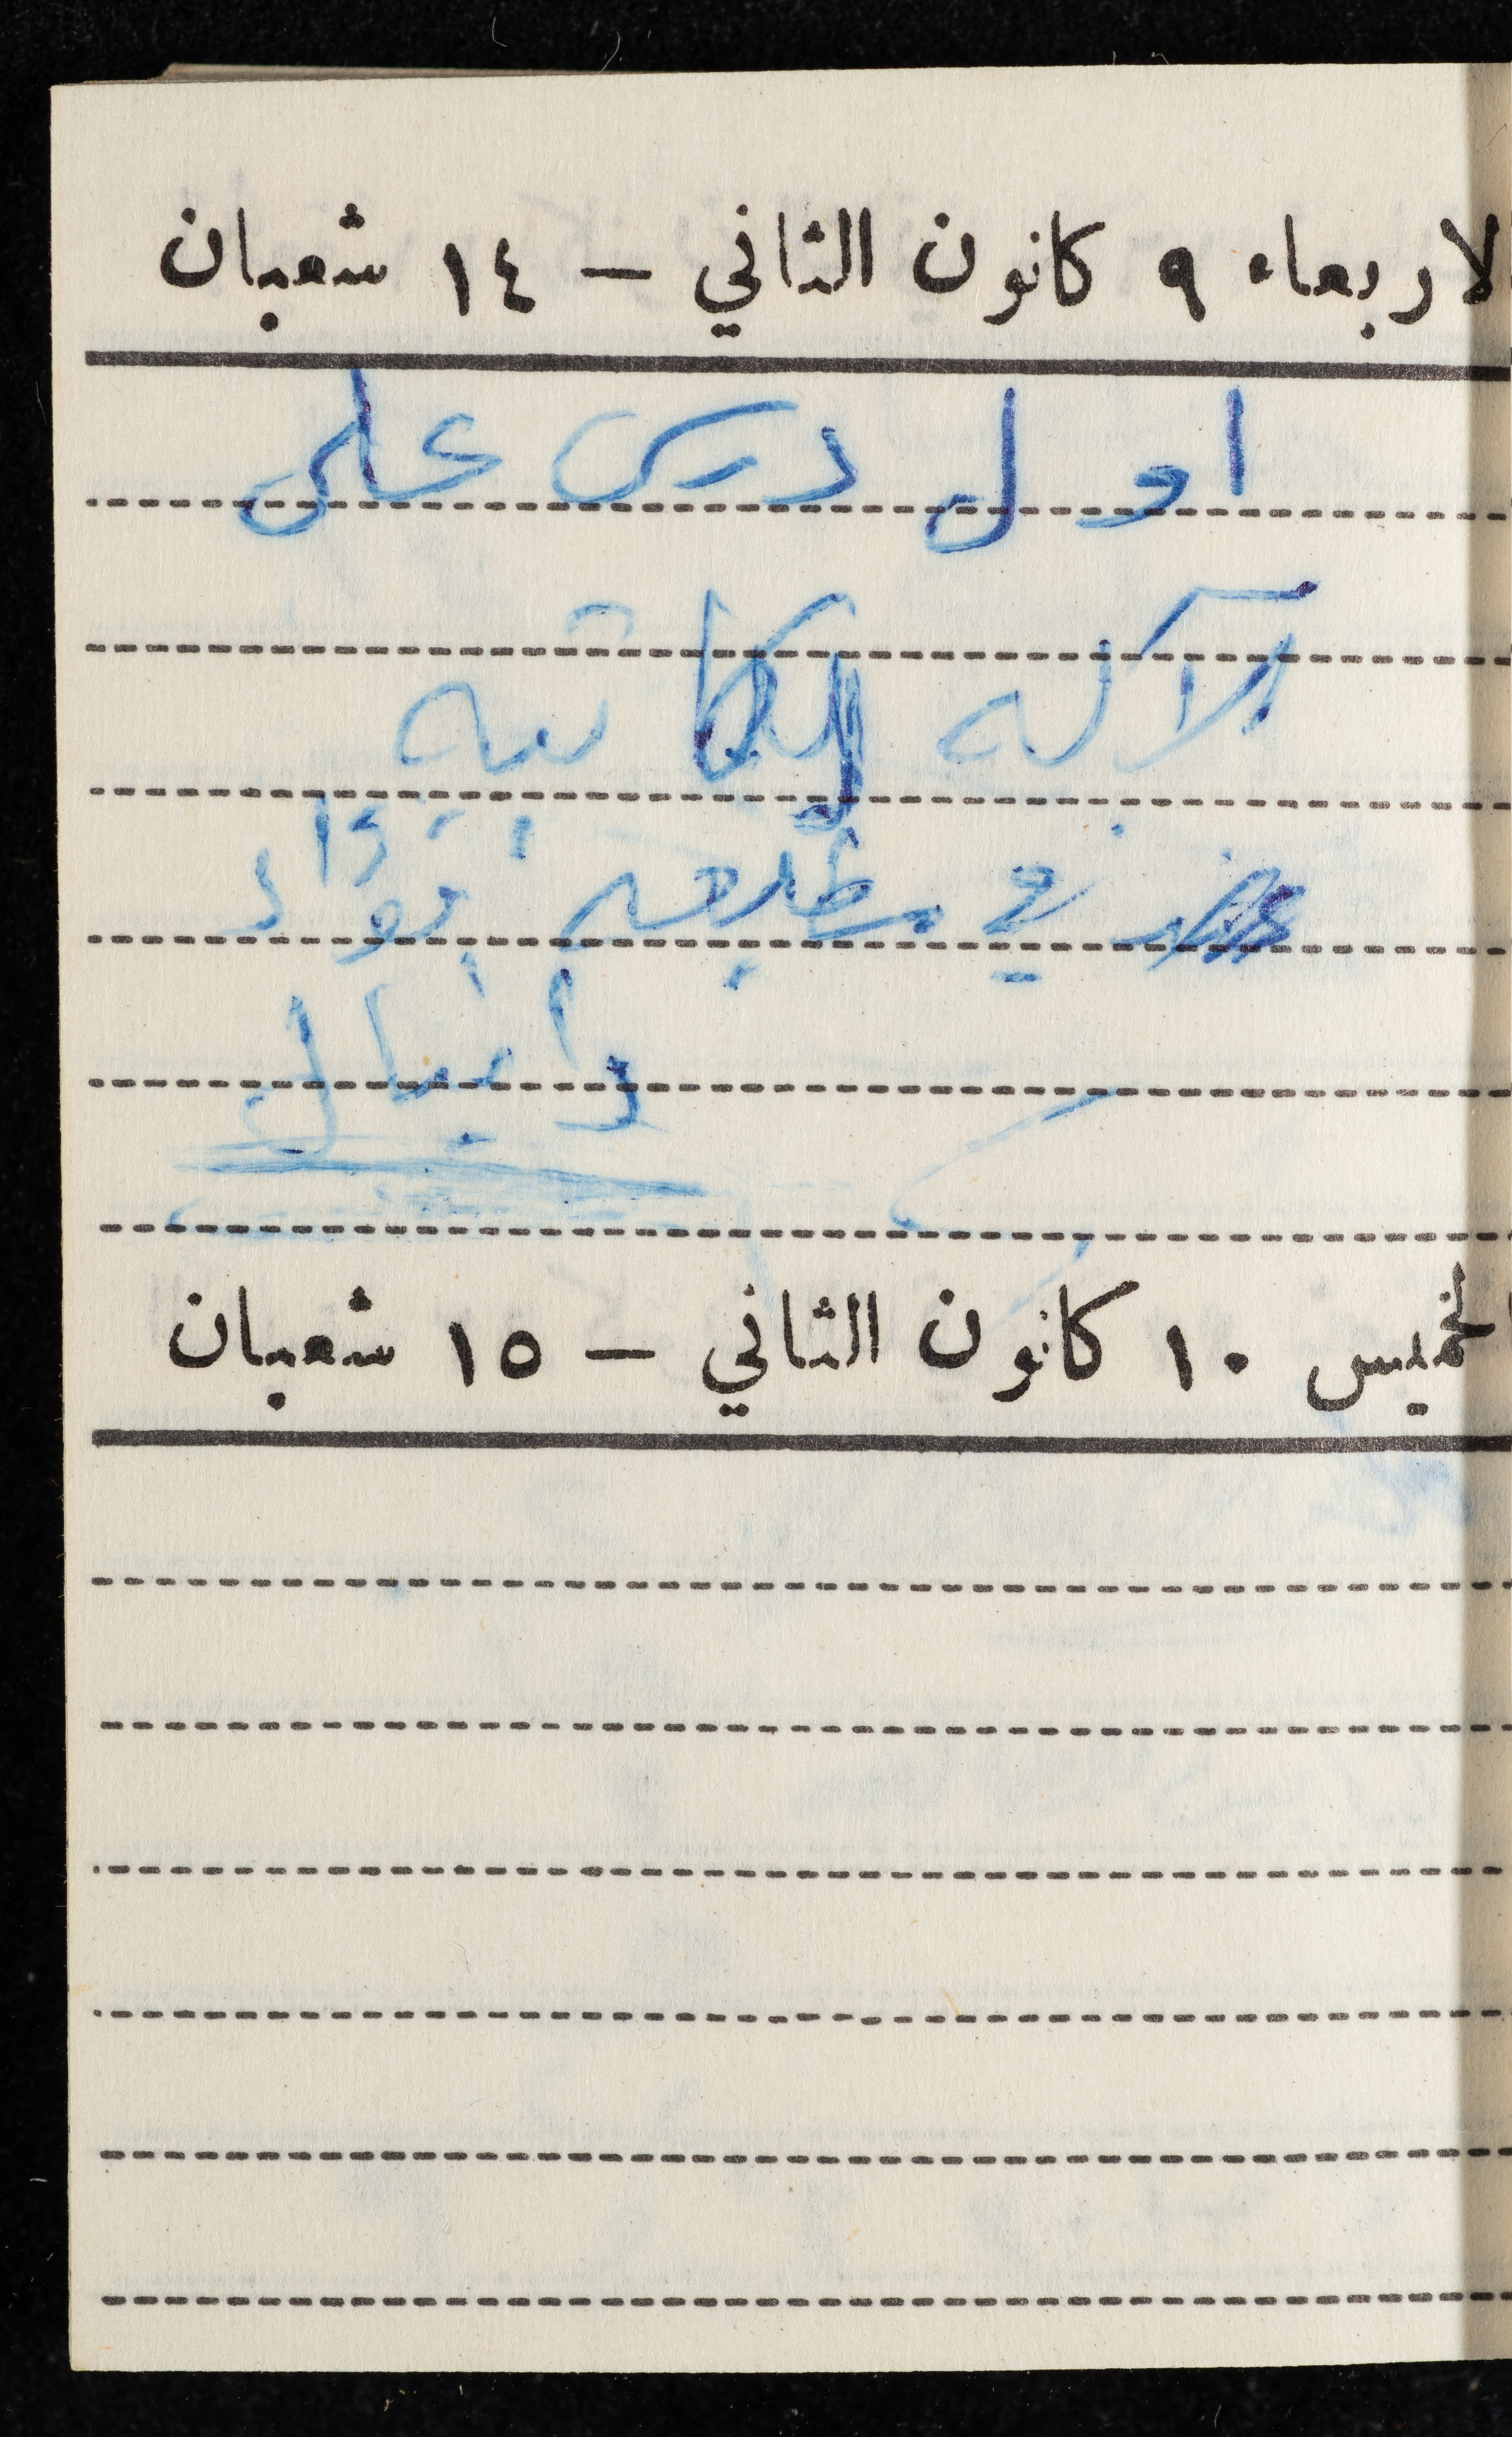 لاربعاء ٩ كانون الثاني – ١٤ شعبان
اول درس على
الآله الكاتبه
في مطبعه فؤاد
دانيال
لخميس ١٠ كانون الثاني – ١٥ شعبان